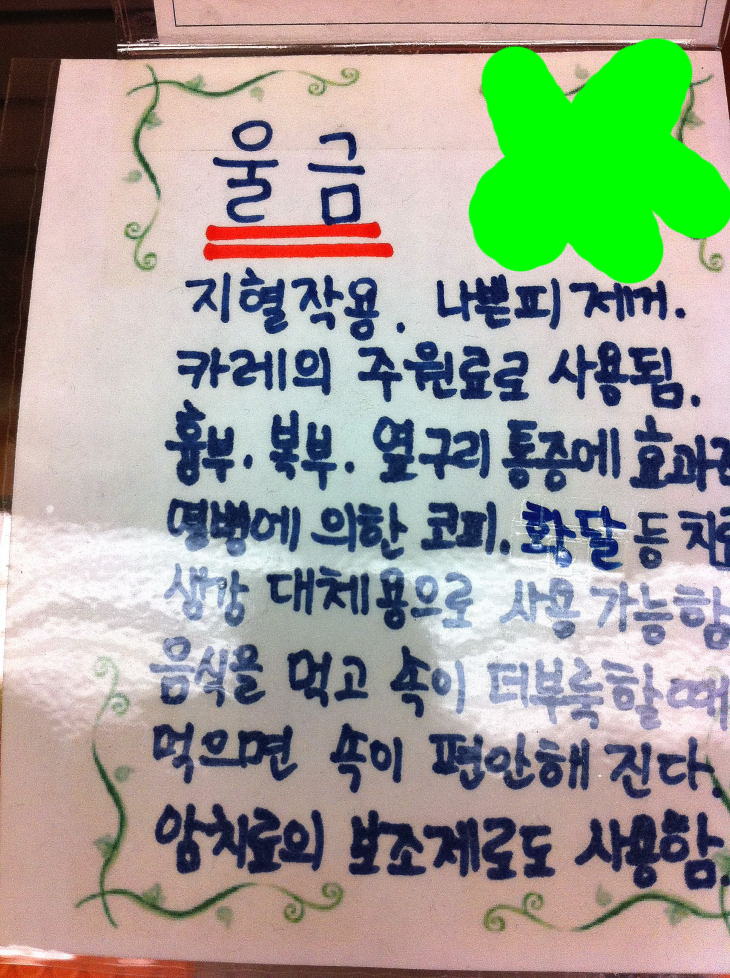 울금
지혈작용. 나쁜피 제거.
카레의 주원료로 사용됨.
흉부. 복부. 옆구리 통증에 효과
열병에 의한 코피. 황달 등 치료
생강 대체용으로 사용 가능함
음식물 먹고 속이 더부룩할 때
먹으면 속이 편안해 진다.
암치료의 보조제로도 사용함.